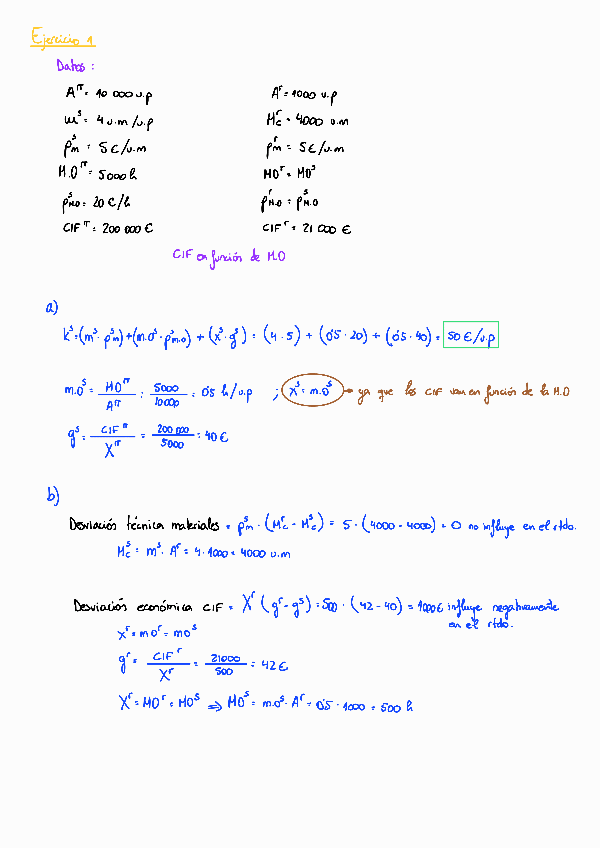 Ejercicio 1
Datos :
Aᴨ = 10 000 u.p    Aʳ = 1000 u.p
mˢ = 4 u.m /u.p    Mcʳ = 4000 u.m
pmˢ = 5 €/u.m    pmʳ = 5 €/u.m
M.Oᴨ = 5000 h    MOʳ = MOˢ
pM.Oˢ = 20 €/h    pM.Oʳ = pM.Oˢ
CIFᴨ = 200 000 €    CIFʳ = 21 000 €
CIF en función de M.O
a)
kˢ = (mˢ · pmˢ) + (m.oˢ · pm.oˢ) + (xˢ · gˢ) = (4 · 5) + (0'5 · 20) + (0'5 · 40) = 50 €/u.p
m.oˢ = MOᴨ / Aᴨ = 5000 / 10000 = 0'5 h/u.p ; xˢ = m.oˢ → ya que los CIF van en función de la M.O
gˢ = CIFᴨ / Xᴨ = 200 000 / 5000 = 40 €
b)
Desviación técnica materiales = pmˢ · (Mcʳ - Mcˢ) = 5 · (4000 - 4000) = 0 no influye en el rtdo.
Mcˢ = mˢ · Aʳ = 4 · 1000 = 4000 u.m
Desviación económica CIF = Xʳ (gʳ - gˢ) = 500 · (42 - 40) = 1000 € influye negativamente
en el rtdo.
xʳ = moʳ = moˢ
gʳ = CIFʳ / Xʳ = 21000 / 500 = 42 €
Xʳ = MOʳ = MOˢ ⇒ MOˢ = m.oˢ · Aʳ = 0'5 · 1000 = 500 h